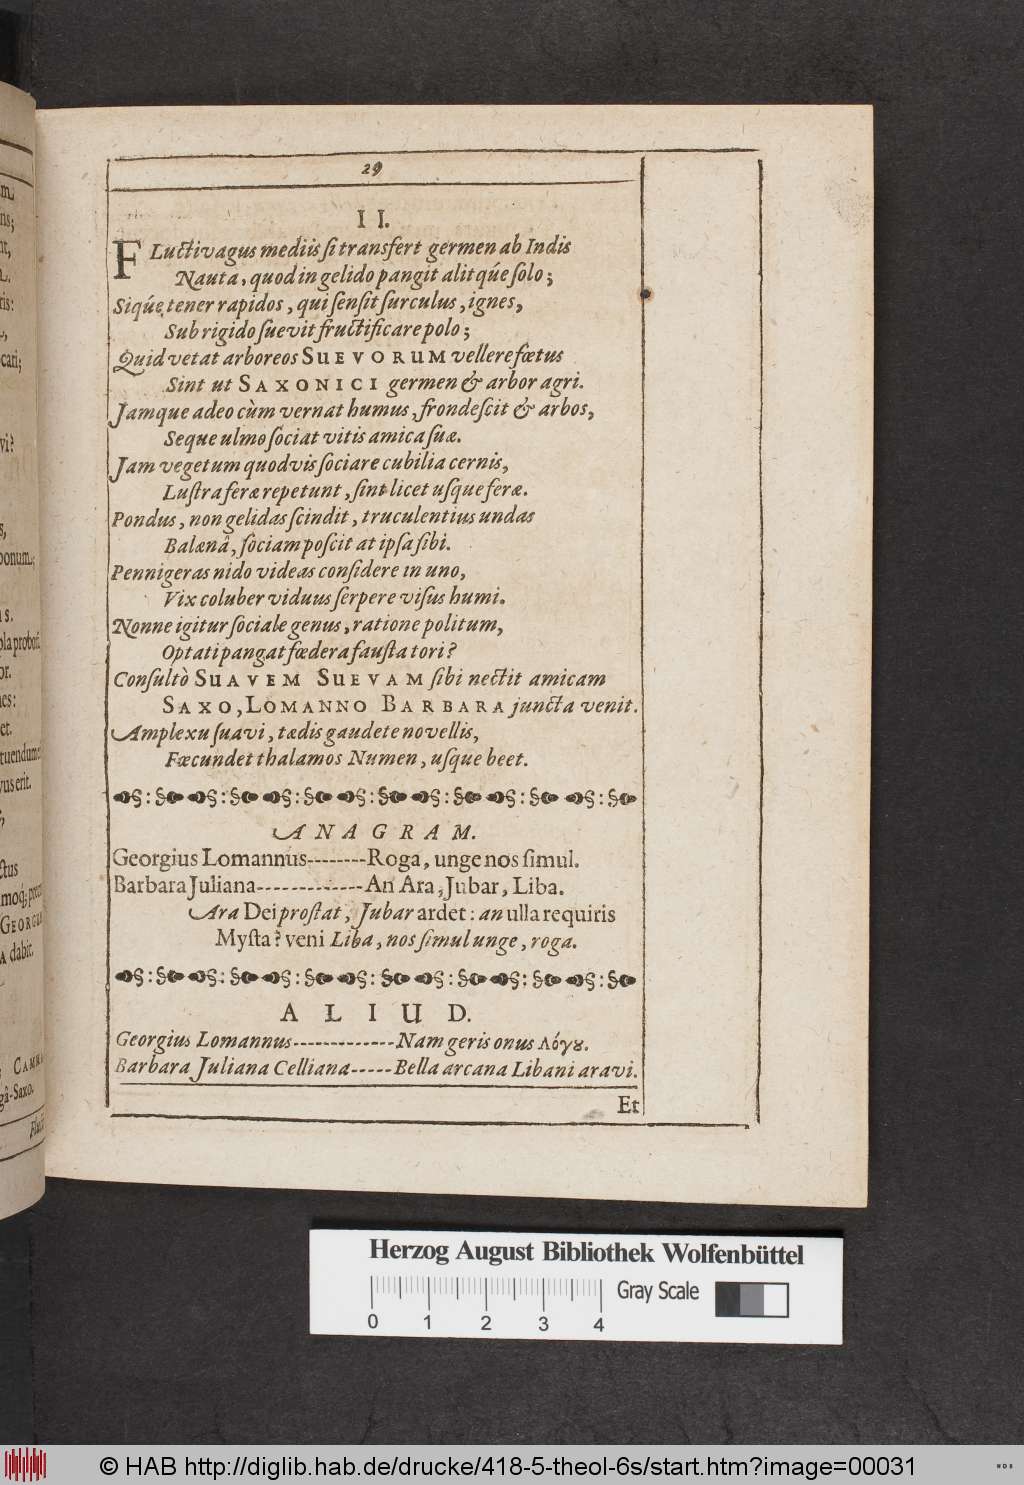 29
II.
FLuctivagus mediis si transfert germen ab Indis
Nauta, quod in gelido pangit alitqúe solo;
Siqúę tener rapidos, qui sensit surculus, ignes,
Sub rigido suevit fructificare polo;
Quid vetat arboreos SUEVORUM vellere fœtus
Sint ut SAXONICI germen & arbor agri.
Jamque adeo cùm vernat humus, frondescit & arbos,
Seque ulmo sociat vitis amica suæ.
Jam vegetum quodvis sociare cubilia cernis,
Lustra feræ repetunt, sint licet usque feræ.
Pondus, non gelidas scindit, truculentius undas
Balænâ, sociam poscit at ipsa sibi.
Pennigeras nido videas considere in uno,
Vix coluber viduus serpere visus humi.
Nonne igitur sociale genus, ratione politum,
Optati pangat fœdera fausta tori?
Consultò SUAVEM SUEVAM sibi nectit amicam
SAXO, LOMANNO BARBARA juncta venit.
Amplexu suavi, tædis gaudete novellis,
Fœcundet thalamos Numen, usque beet.
ANAGRAM.
Georgius Lomannus--------Roga, unge nos simul.
Barbara Juliana-------------An Ara, Jubar, Liba.
Ara Dei prostat, Jubar ardet: an ulla requiris
Mysta? veni Liba, nos simul unge, roga.
ALIUD.
Georgius Lomannus-------------Nam geris onus Λόγȣ.
Barbara Juliana Celliana-----Bella arcana Libani aravi.
Et
m.
ns;
nt,
tis:
cari;
vi?
s,
bonum.;
is.
or.
nes:
et.
tuendum
vus erit.
ctus
GEORGI
A dabit.
CAMM
gâ-Saxo.
Herzog August Bibliothek Wolfenbüttel
0 1 2 3 4
Gray Scale
© HAB http://diglib.hab.de/drucke/418-5-theol-6s/start.htm?image=00031